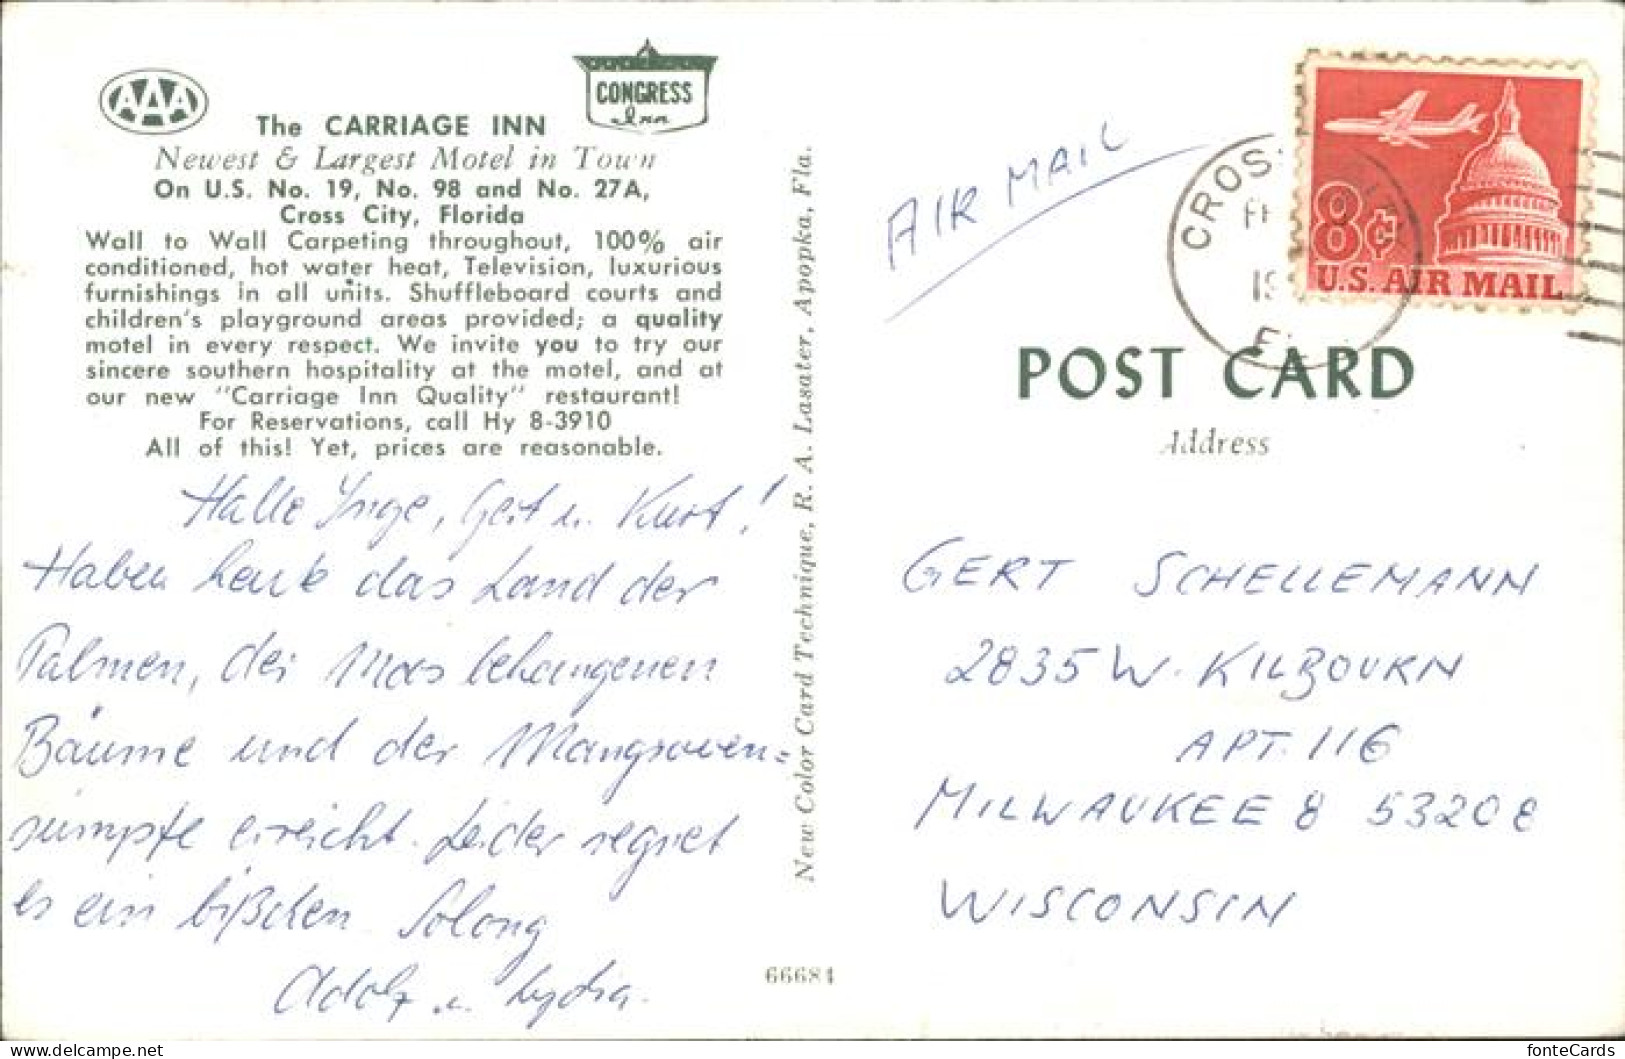 AAA
CONGRESS
Inn
The CARRIAGE INN
Newest & Largest Motel in Town
On U.S. No. 19, No. 98 and No. 27A,
Cross City, Florida
Wall to Wall Carpeting throughout, 100% air
conditioned, hot water heat, Television, luxurious
furnishings in all units. Shuffleboard courts and
children's playground areas provided; a quality
motel in every respect. We invite you to try our
sincere southern hospitality at the motel, and at
our new "Carriage Inn Quality" restaurant!
For Reservations, call Hy 8-3910
All of this! Yet, prices are reasonable.
Hallo Inge, Gert u. Kurt!
Haben heute das Land der
Palmen, der Moos behangenen
Bäume und der Mangroven=
sümpfe erreicht. Leider regnet
es ein bißchen. Solong
Adolf u. Lydia.
New Color Card Technique, R. A. Lasater, Apopka, Fla.
66684
AIR MAIL
CROSS CITY
19
8¢
U.S. AIR MAIL
POST CARD
Address
GERT SCHELLEMANN
2835 W. KILBOURN
APT. 116
MILWAUKEE 8 53208
WISCONSIN
fonteCards